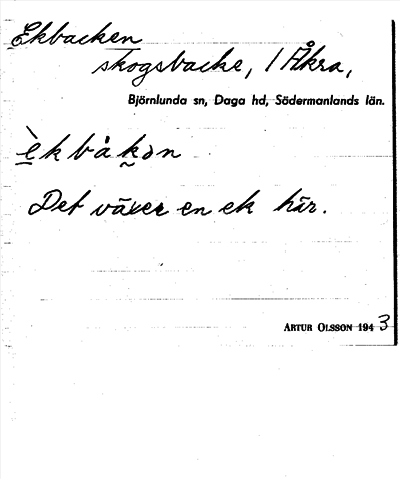 Ekbacken
skogsbacke, 1 Åkra,
Björnlunda sn, Daga hd, Södermanlands län.
è̲k bå k̰ən
Det växer en ek här.
ARTUR OLSSON 1943